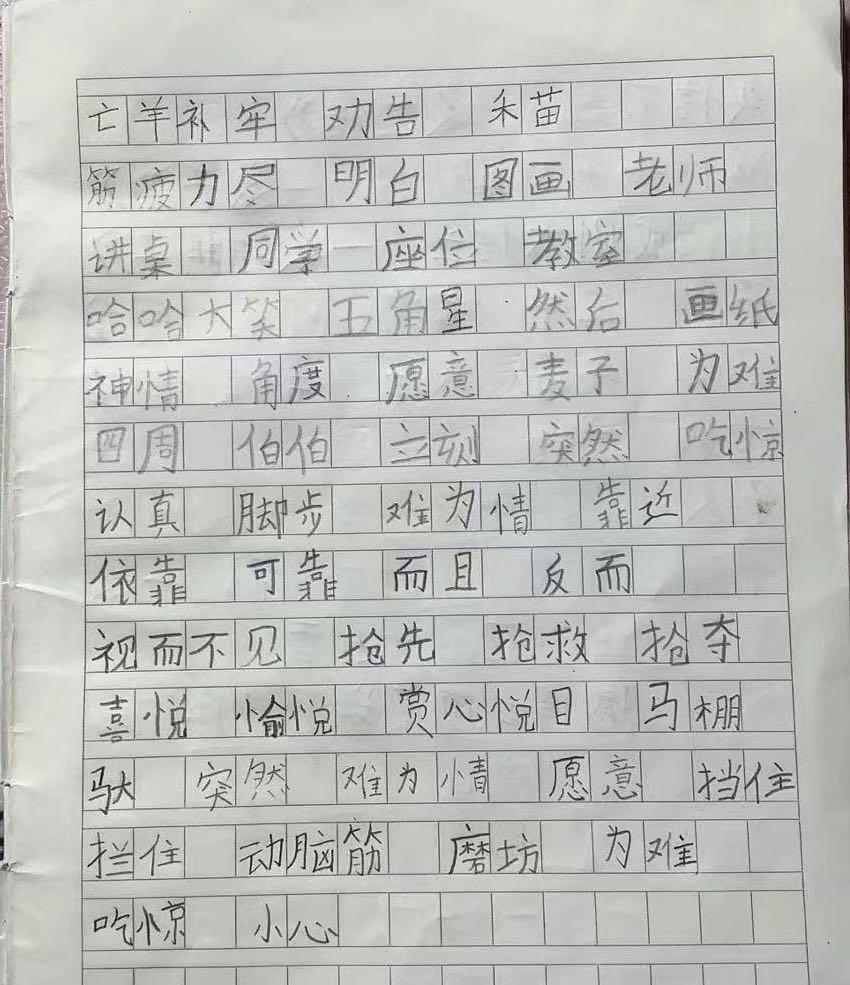 亡羊补牢 劝告 禾苗
筋疲力尽 明白 图画 老师
讲桌 同学 座位 教室
哈哈大笑 五角星 然后 画纸
神情 角度 愿意 麦子 为难
四周 伯伯 立刻 突然 吃惊
认真 脚步 难为情 靠近
依靠 可靠 而且 反而
视而不见 抢先 抢救 抢夺
喜悦 愉悦 赏心悦目 马棚
驮 突然 难为情 愿意 挡住
拦住 动脑筋 磨坊 为难
吃惊 小心